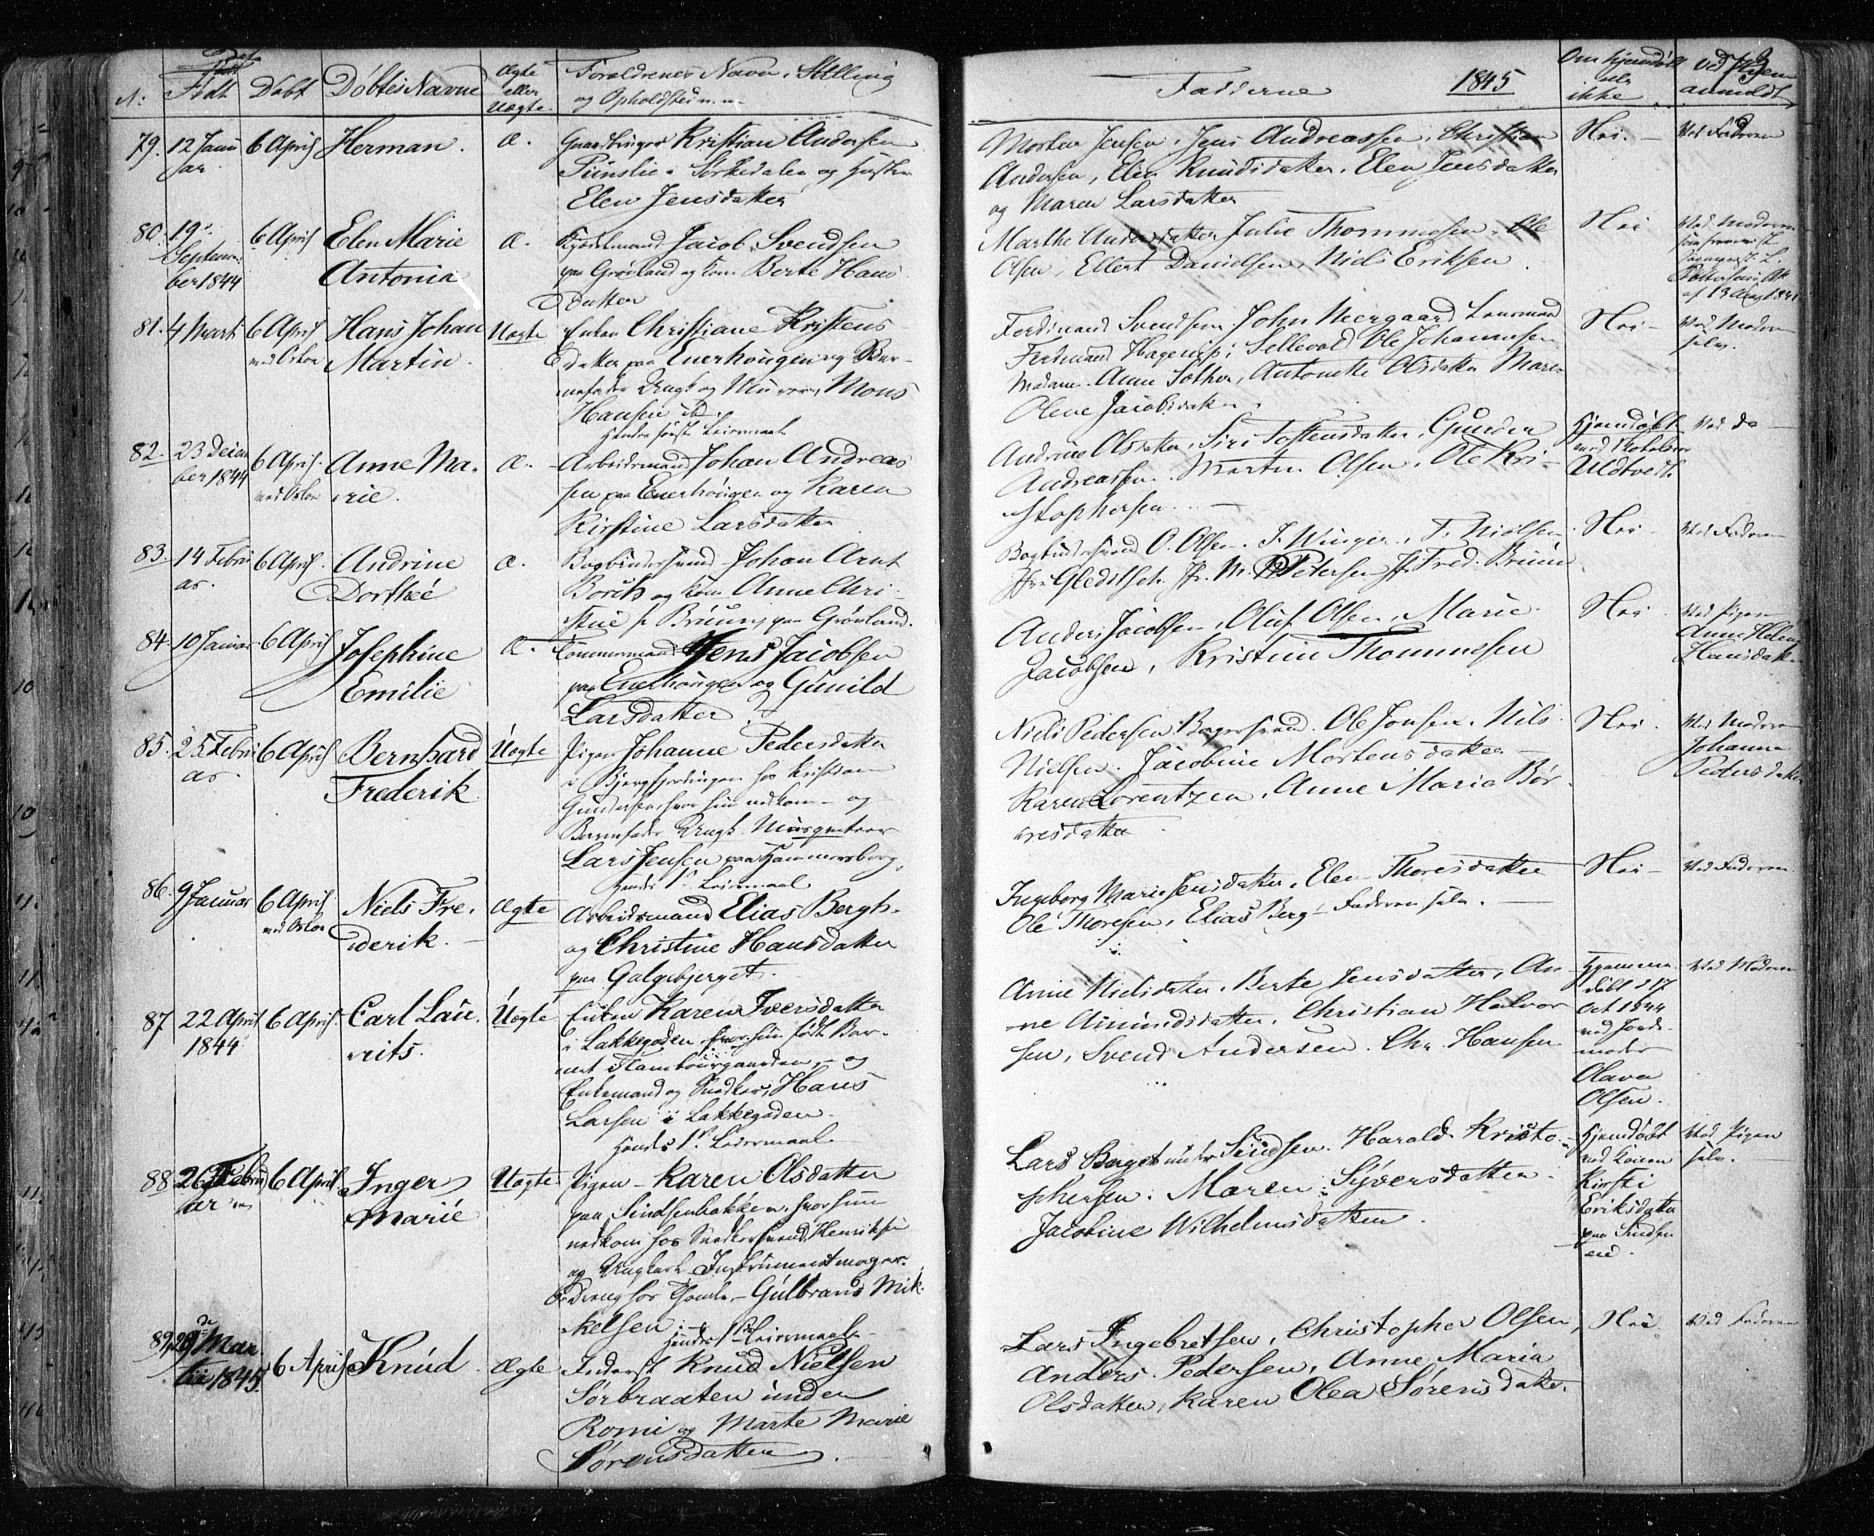 N: Født Døbt Døbtes Navne Ægte eller Uægte Forældrenes Navn, Stilling og Opholdsted Fadderne 1845 Om hjemdøbt eller ikke anmeldt
79. 12 Januar 6 April Herman. Æ. Kristian Andersen
i Sørkedalen og
Elen Jensdatter
Morten Jensen, Jens Andreassen, Christian
Andersen, Elen Knudsdatter, Elen Jensdatter
og Maren Larsdatter
Nei. Ved Faderen
80. 19 September 1844 6 April Elen Marie Antonia Æ. Jacob Svendsen
paa Grønland og Kone Berte Hans
datter
Marthe Andersdatter Julie Thommesen, Ole
Olsen, Ellert Danielsen, Niels Eriksen.
Nei Ved Moderen
81. 4 Marts 6 April ved Oslo Hans Johan Martin. Uægte Enken Christiane Kristens
datter paa Enerhougen og Bar-
nefader Ungk og Murer Mons
Hansen ibd.
Hendes første Leiermaal
Ferdinand Svendsen, John
Ferdinand Ole Johannesen
Madam Anne Antonette Olsdatter Maren
Olene Jacobsdatter.
Nei Ved Moderen selv.
82. 23 December 1844 6 April ved Oslo Anne Marie. Æ. Arbeidsmand Johan Andreas
sen paa Enerhougen og Karen
Kirstine Larsdatter
Andrine Olsdatter, Siri Gunder
Andreassen. Martin Olsen, Ole Kri-
stophersen.
Hjemdøbt Ved do
83. 14 Februar 6 April. Andrine Dorthée Æ. Bogbindersvend Johan Arnt
Borch og Kone Anne Chri-
stine f. Bruun, paa Grønland.
Bogbindersvend O. Olsen. J. Winger, T. Nielsen
Jfr. Gleditsch. Jfr. M. Petersen Jf. Fred. Bruun.
Nei Ved Faderen
84. 10 Januar 6 April Josephine Emilie Æ. Tømmermand Jens Jacobsen
paa Enerhougen og Gunild
Larsdatter
Anders Jacobsen, Oluf Olsen, Marie
Jacobsen, Kristine Thommesen
Nei Ved Pigen Anne Helene Hansdatt.
85. 25 Februar 6 April Bernhard Frederik Uægte Pigen Johanne Pedersdatter
i hos Kristian
Gundersen, hvor hun nedkom og
Barnefader Ungk.
Lars Jensen paa Hammersborg.
Hendes 1ste Leiermaal
Niels Pedersen Bagersvend. Ole Jensen. Nils
Nielsen. Jacobine Mortensdatter
Karen Lorentzen, Anne Maria Bør-
resdatter
Nei. Ved Moderen Johanne Pedersdatter
86. 9 Januar 6 April ved Oslo Niels Frederik. Ægte Arbeidsmand Elias Bergh.
og Christine Hansdatter
paa Galgebjerget.
Ingeborg Marie Jensdatter, Elen Thoresdatter
Ole Thoresen, Elias Berg Faderen selv.
Nei Ved Faderen
87 22 April 1844 6 April. Carl Laurits. Uægte Enken Karen Iversdatter
i Lakkegaden hvor hun født Bar-
net i Tambourgaarden, og
Enkemand og Snedker, Hans
Larsen i Lakkegaden.
Hendes 1ste Leiermaal.
Anne Nielsdatter. Berte Jensdatter, An-
ne Amundsdatter. Christian Halvor
sen, Svend Andersen. Chr. Hansen
Hjemmedøbt 17 Oct 1844 ved Jordemoder Olava Olsen. Ved Moderen
88 26 Februar 6 April. Inger Marie Uægte Pigen Karen Olsdatter
paa Sindsenbakken, hvor hun
nedkom hos Snedkersvend Henriksen
og Ungkarl Instrumentmager-
Dreng hos Gulbrand Mik-
kelsen. Hendes 1ste Leiermaal
Lars Sindsen. Harald Kristo-
phersen. Maren Syversdatter.
Jacobine Wilhelmsdatter.
Hjemdøbt ved Konen Kirsti Eriksdatter paa Sindsen eie. Ved Pigen selv.
89. 29 Martii 1845. 6 April Knud Ægte Inderst Knud Nielsen
Sørbraaten under
Romi og Marte Marie
Sørensdatter
Lars Ingebretsen, Christopher Olsen,
Anders Pedersen, Anne Maria
Olsdatter, Karen Olea Sørensdatter.
Nei Ved Faderen